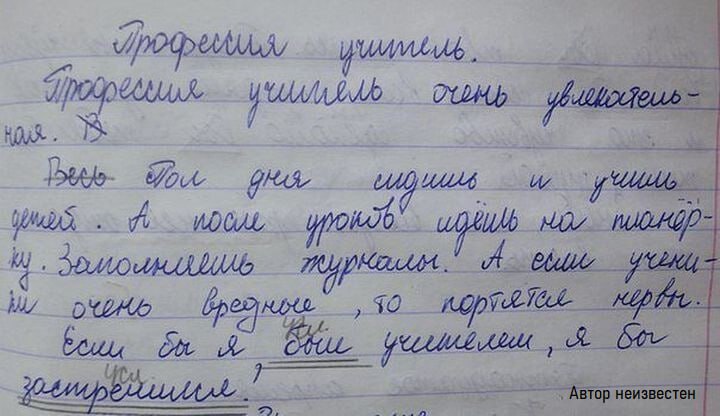 Профессия учитель.
Профессия учитель очень увлекатель-
ная. В
Весь Пол дня сидишь и учишь
детей. А после уроков идёшь на планёр-
ку. Заполняешь журналы. А если учени-
ки очень вредные, то портятся нервы.
усл.
Если бы я был учителем, я бы
усл
застрелился.
Автор неизвестен